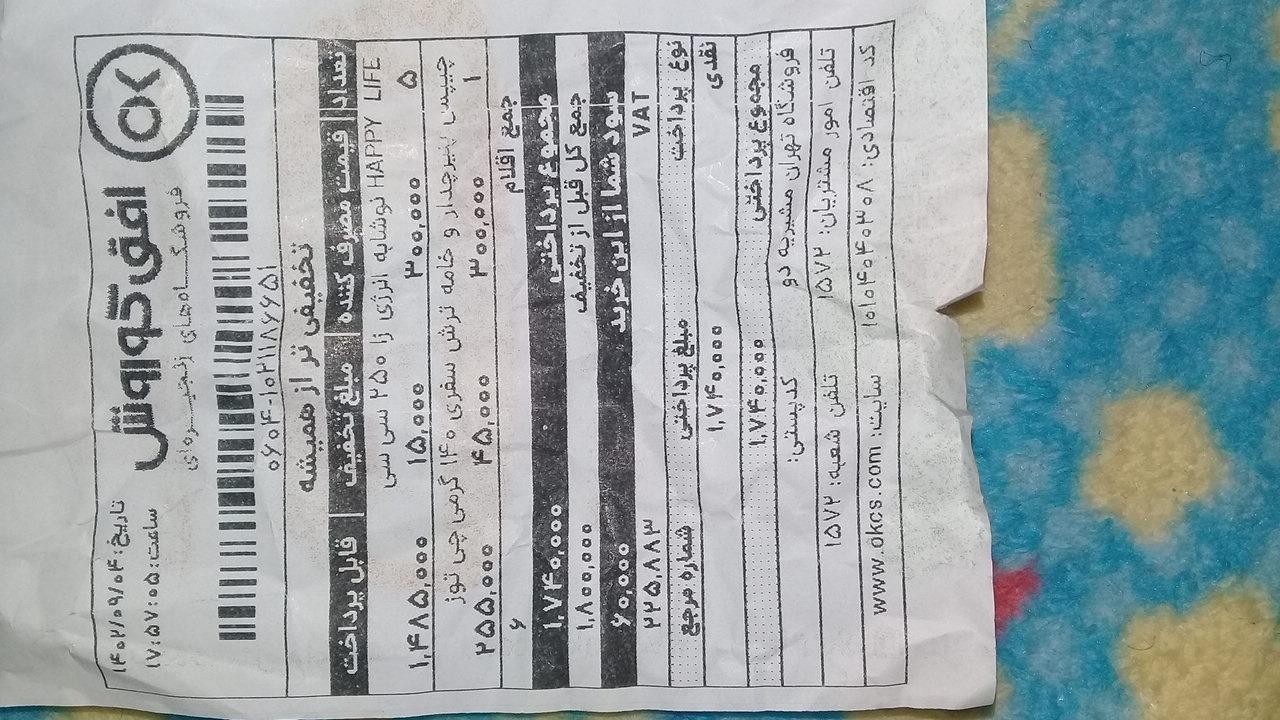 افق کوروش
OK
فروشگاه‌های زنجیره‌ای
تاریخ: ۱۴۰۲/۰۹/۰۴
ساعت: ۱۷:۵۷:۰۵
۰۶۰۴-۱۰۲۱۱۸۸۶۶۵۱
تخفیفی تر از همیشه
تعداد | قیمت مصرف کننده | مبلغ تخفیف | قابل پرداخت
نوشابه انرژی زا ۲۵۰ سی سی HAPPY LIFE
۵ ۳۰۰,۰۰۰ ۱۵,۰۰۰ ۱,۴۸۵,۰۰۰
چیپس پیرچدار و خامه ترش سفری ۱۴۰ گرمی چی توز
۱ ۳۰۰,۰۰۰ ۴۵,۰۰۰ ۲۵۵,۰۰۰
جمع اقلام ۶
مجموع پرداختی ۱,۷۴۰,۰۰۰
جمع کل قبل از تخفیف ۱,۸۰۰,۰۰۰
سود شما از این خرید ۶۰,۰۰۰
VAT ۲۲۵,۸۸۳
نوع پرداخت مبلغ پرداختی شماره مرجع
نقدی ۱,۷۴۰,۰۰۰
مجموع پرداختی ۱,۷۴۰,۰۰۰
فروشگاه تهران مشیریه دو کدپستی:
تلفن امور مشتریان: ۱۵۷۲ تلفن شعبه: ۱۵۷۲
کد اقتصادی: ۱۰۱۰۴۰۴۰۳۰۸ سایت: www.okcs.com